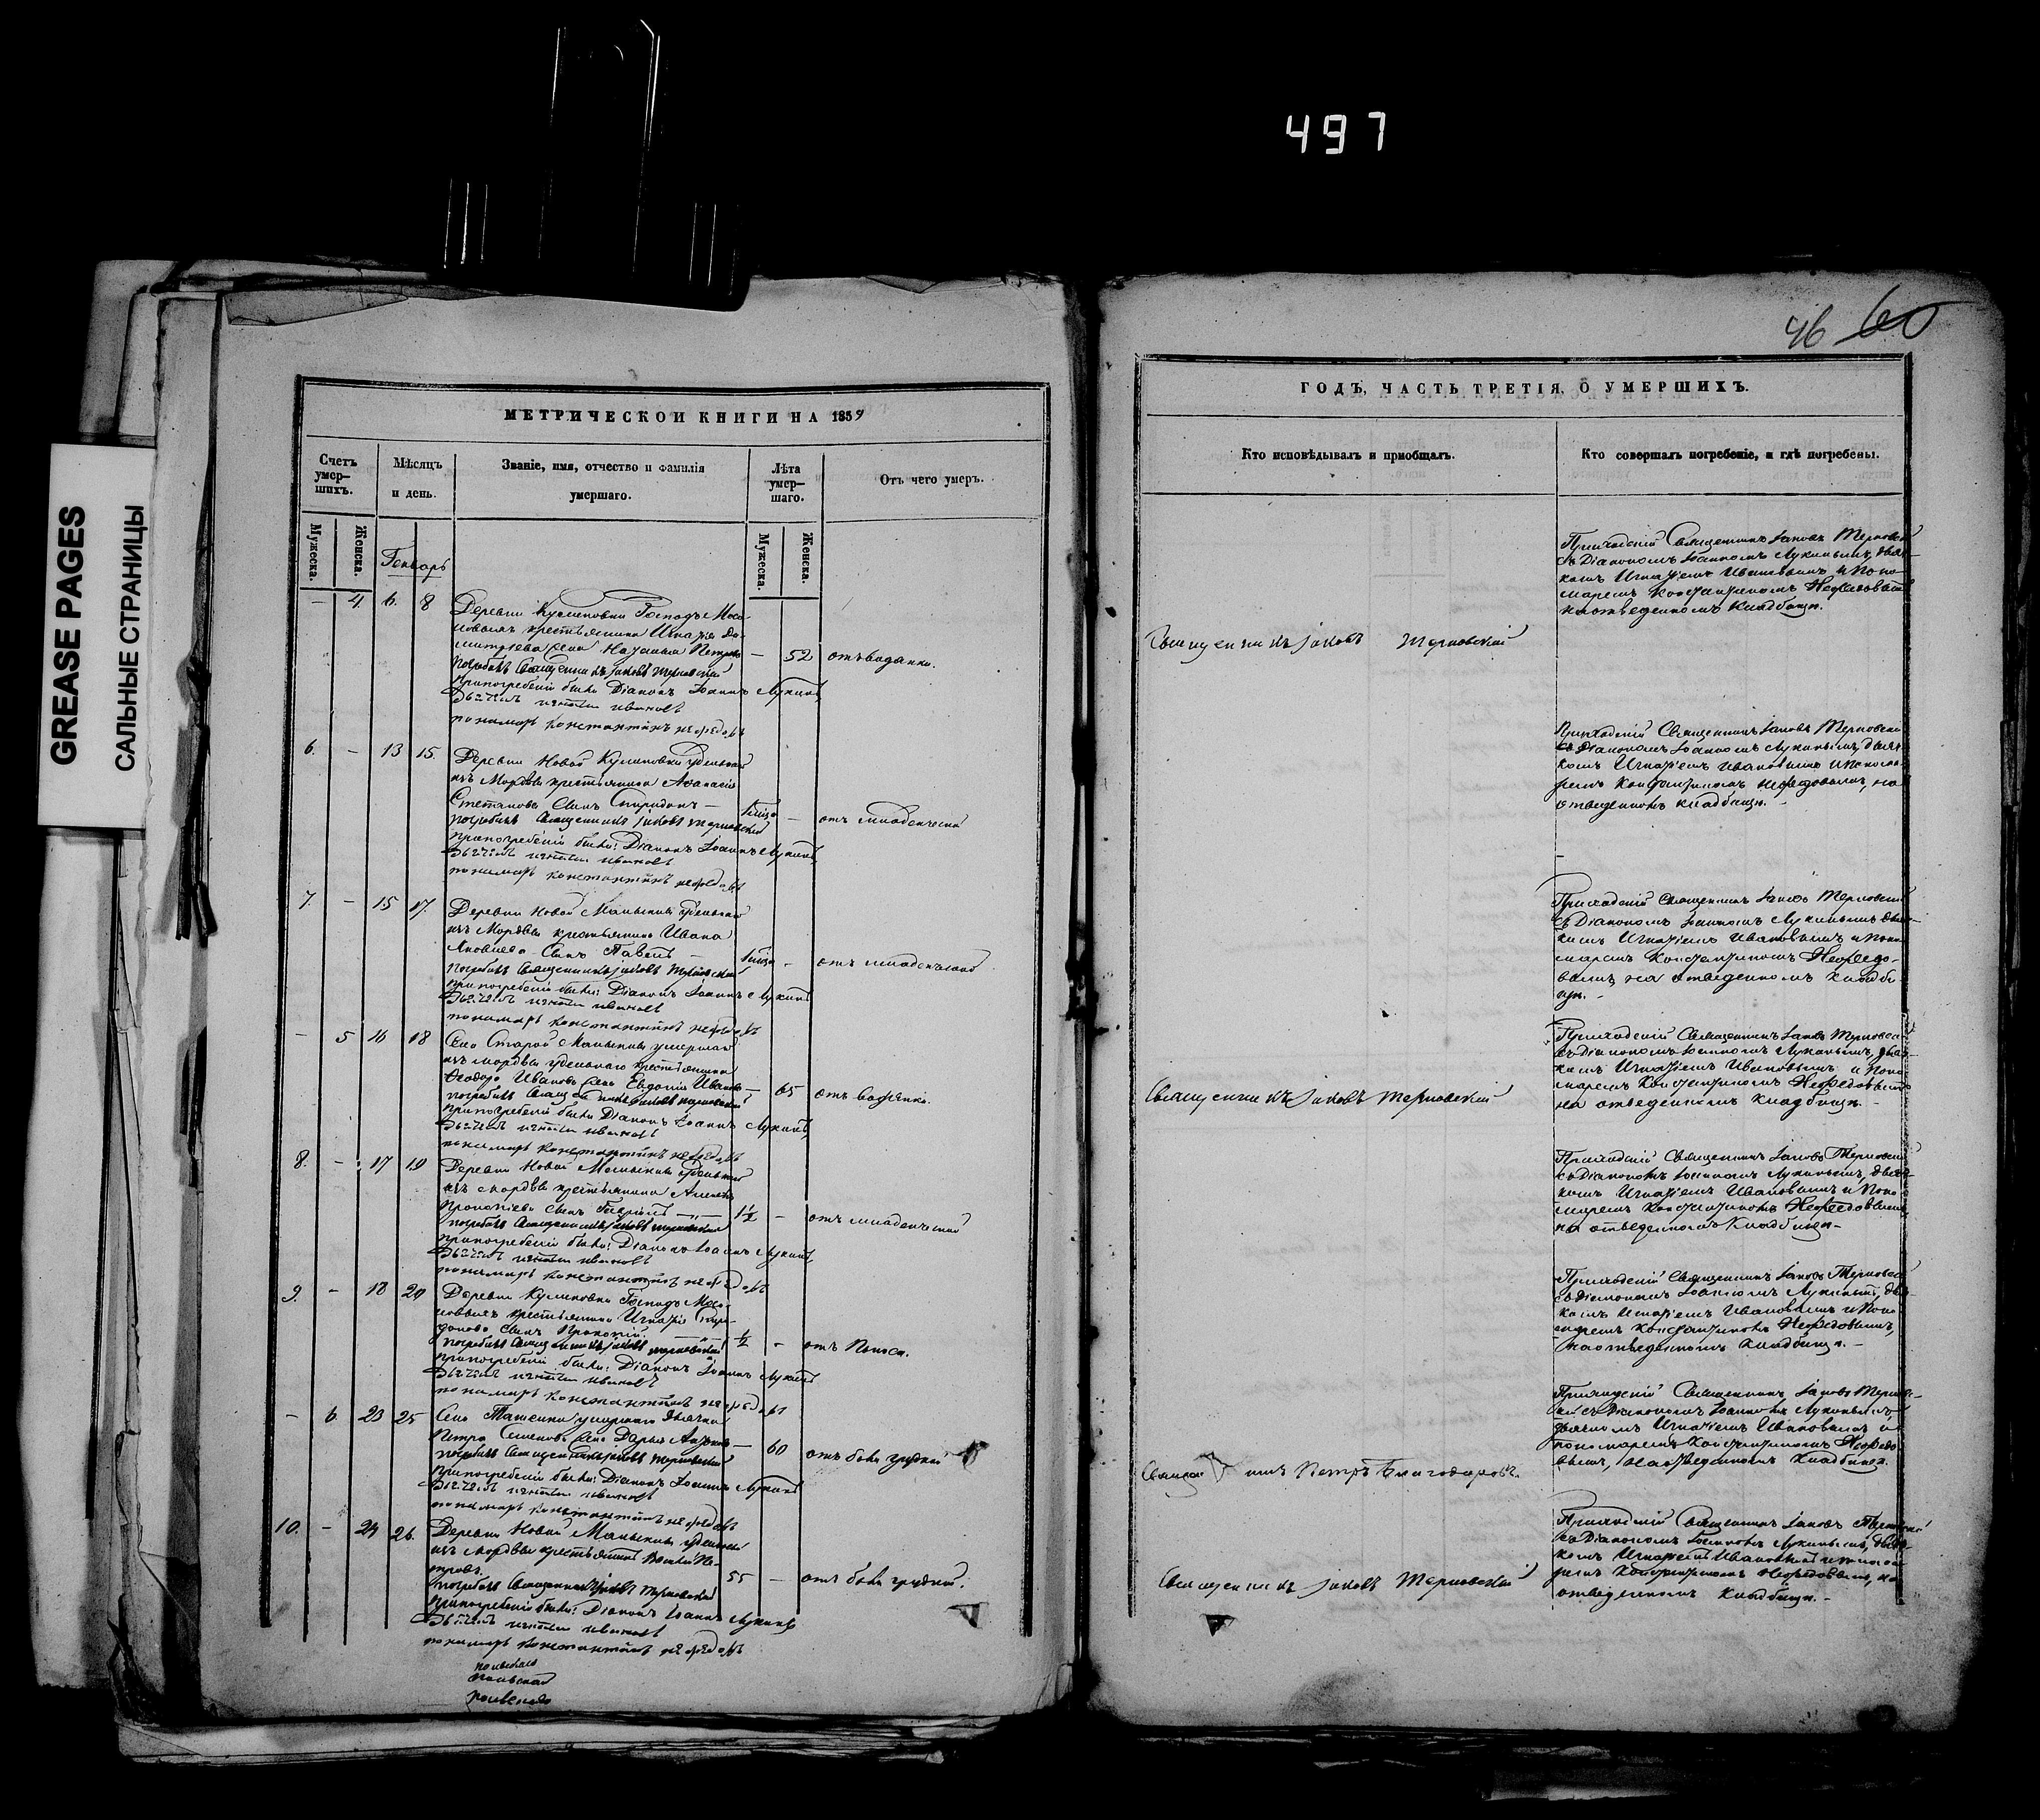 497
GREASE PAGES
САЛЬНЫЕ СТРАНИЦЫ
МЕТРИЧЕСКОИ КНИГИ НА 1859
Счетъ умер-
шихъ.
Мѣсяцъ
и день.
Званіе, имя, отчество и фамилія
умершаго.
Лѣта
умер-
шаго.
Отъ чего умеръ.
Мужеска.
Женска.
Генварь
Мужеска.
Женска.
— 4 6. 8
Деревни Куликовки Господъ Моса-
ловыхъ крестьянина Игнатія Ди-
митріева
— 52 отъ водянки.
погребалъ Священникъ Іаковъ Терновскій
при погребеніи были Діаконъ Іоаннъ Лукинъ,
Дьячекъ Игнатій Ивановъ
пономарь Константинъ Нефедовъ
6. — 13 15.
Деревни Новой Куликовки удельной
изъ Мордвы крестьянина Аѳанасія
Степанова сынъ Спиридонъ —
— отъ младенческой
погребалъ Священникъ Іаковъ Терновскій
при погребеніи были: Діаконъ Іоаннъ Лукинъ,
Дьячекъ Игнатій Ивановъ
пономарь Константинъ Нефедовъ
7. — 15 17.
Деревни Новой Малыклы удельной
изъ Мордвы крестьянина Ивана
Яковлева сынъ Павелъ —
— отъ младенческой
погребалъ Священникъ Іаковъ Терновскій
при погребеніи были: Діаконъ Іоаннъ Лукинъ
Дьячекъ Игнатій Ивановъ
пономарь Константинъ Нефедовъ
— 5 16 18
Села Старой Малыклы умершаго
изъ мордвы удельнаго крестьянина
Ѳеодора Иванова жена Евдокія Иванова
— 65 отъ водянки.
погребалъ Священникъ Іаковъ Терновскій
при погребеніи были Діаконъ Іоаннъ Лукинъ,
Дьячекъ Игнатій Ивановъ
пономарь Константинъ Нефедовъ
8. — 17 19
Деревни Новой Малыклы удельной
изъ мордвы крестьянина
Прокопіева сынъ Гавріилъ
1½ — отъ младенческой
погребалъ Священникъ Іаковъ Терновскій
при погребеніи были: Діаконъ Іоаннъ Лукинъ,
Дьячекъ Игнатій Ивановъ
пономарь Константинъ Нефедовъ
9. — 18 20
Деревни Куликовки Господъ Моса-
ловыхъ крестьянина Игнатія Спири-
донова сынъ Прокопій.
½ — отъ Поноса.
погребалъ Священникъ Іаковъ Терновскій
при погребеніи были: Діаконъ Іоаннъ Лукинъ
Дьячекъ Игнатій Ивановъ
пономарь Константинъ Нефедовъ
— 6 23 25
Села умершаго дьячка
Петра Семенова жена Дарья
— 60 отъ боли грудной
погребалъ Священникъ Іаковъ Терновскій
при погребеніи были: Діаконъ Іоаннъ Лукинъ
Дьячекъ Игнатій Ивановъ
пономарь Константинъ Нефедовъ
10. — 24 26.
Деревни Новой Малыклы удельной
изъ мордвы крестьянинъ
55 — отъ боли грудной.
погребалъ Священникъ Іаковъ Терновскій
при погребеніи были: Діаконъ Іоаннъ Лукинъ
Дьячекъ Игнатій Ивановъ
пономарь Константинъ Нефедовъ
46 60
ГОДЪ, ЧАСТЬ ТРЕТІЯ, О УМЕРШИХЪ.
Кто исповѣдывалъ и пріобщалъ.
Кто совершалъ погребеніе, и гдѣ погребены.
Священникъ Іаковъ Терновскій
Приходскій Священникъ Іаковъ Терновскій
съ Діакономъ Іоанномъ Лукинымъ, дьяч-
комъ Игнатіемъ Ивановымъ и Поно-
маремъ Константиномъ Нефедовымъ
на отведенномъ кладбищѣ.
Приходскій Священникъ Іаковъ Терновскій
съ Діакономъ Іоанномъ Лукинымъ, дьяч-
комъ Игнатіемъ Ивановымъ и Понома-
ремъ Константиномъ Нефедовымъ, на
отведенномъ кладбищѣ. —
Приходскій Священникъ Іаковъ Терновскій
съ Діакономъ Іоанномъ Лукинымъ дьяч-
комъ Игнатіемъ Ивановымъ и Поно-
маремъ Константиномъ Нефедо-
вымъ, на отведенномъ кладби-
щѣ. —
Священникъ Іаковъ Терновскій
Приходскій Священникъ Іаковъ Терновскій
съ Діакономъ Іоанномъ Лукинымъ, дьяч-
комъ Игнатіемъ Ивановымъ и Поно-
маремъ Константиномъ Нефедовымъ
на отведенномъ кладбищѣ. —
Приходскій Священникъ Іаковъ Терновскій
съ Діакономъ Іоанномъ Лукинымъ, дьяч-
комъ Игнатіемъ Ивановымъ и Поно-
маремъ Константиномъ Нефедовымъ,
на отведенномъ кладбищѣ —
Приходскій Священникъ Іаковъ Терновскій
съ Діакономъ Іоанномъ Лукинымъ, дьяч-
комъ Игнатіемъ Ивановымъ и Поно-
маремъ Константиномъ Нефедовымъ,
на отведенномъ кладбищѣ. —
Священникъ Петръ Благодаровъ.
Приходскій Священникъ Іаковъ Тернов-
скій съ Діакономъ Іоанномъ Лукинымъ,
дьячкомъ Игнатіемъ Ивановымъ и
пономаремъ Константиномъ Нефедо-
вымъ, на отведенномъ кладбищѣ.
Священникъ Іаковъ Терновскій
Приходскій Священникъ Іаковъ Терновскій
съ Діакономъ Іоанномъ Лукинымъ, дьяч-
комъ Игнатіемъ Ивановымъ и понома-
ремъ Константиномъ Нефедовымъ, на
отведенномъ кладбищѣ. —